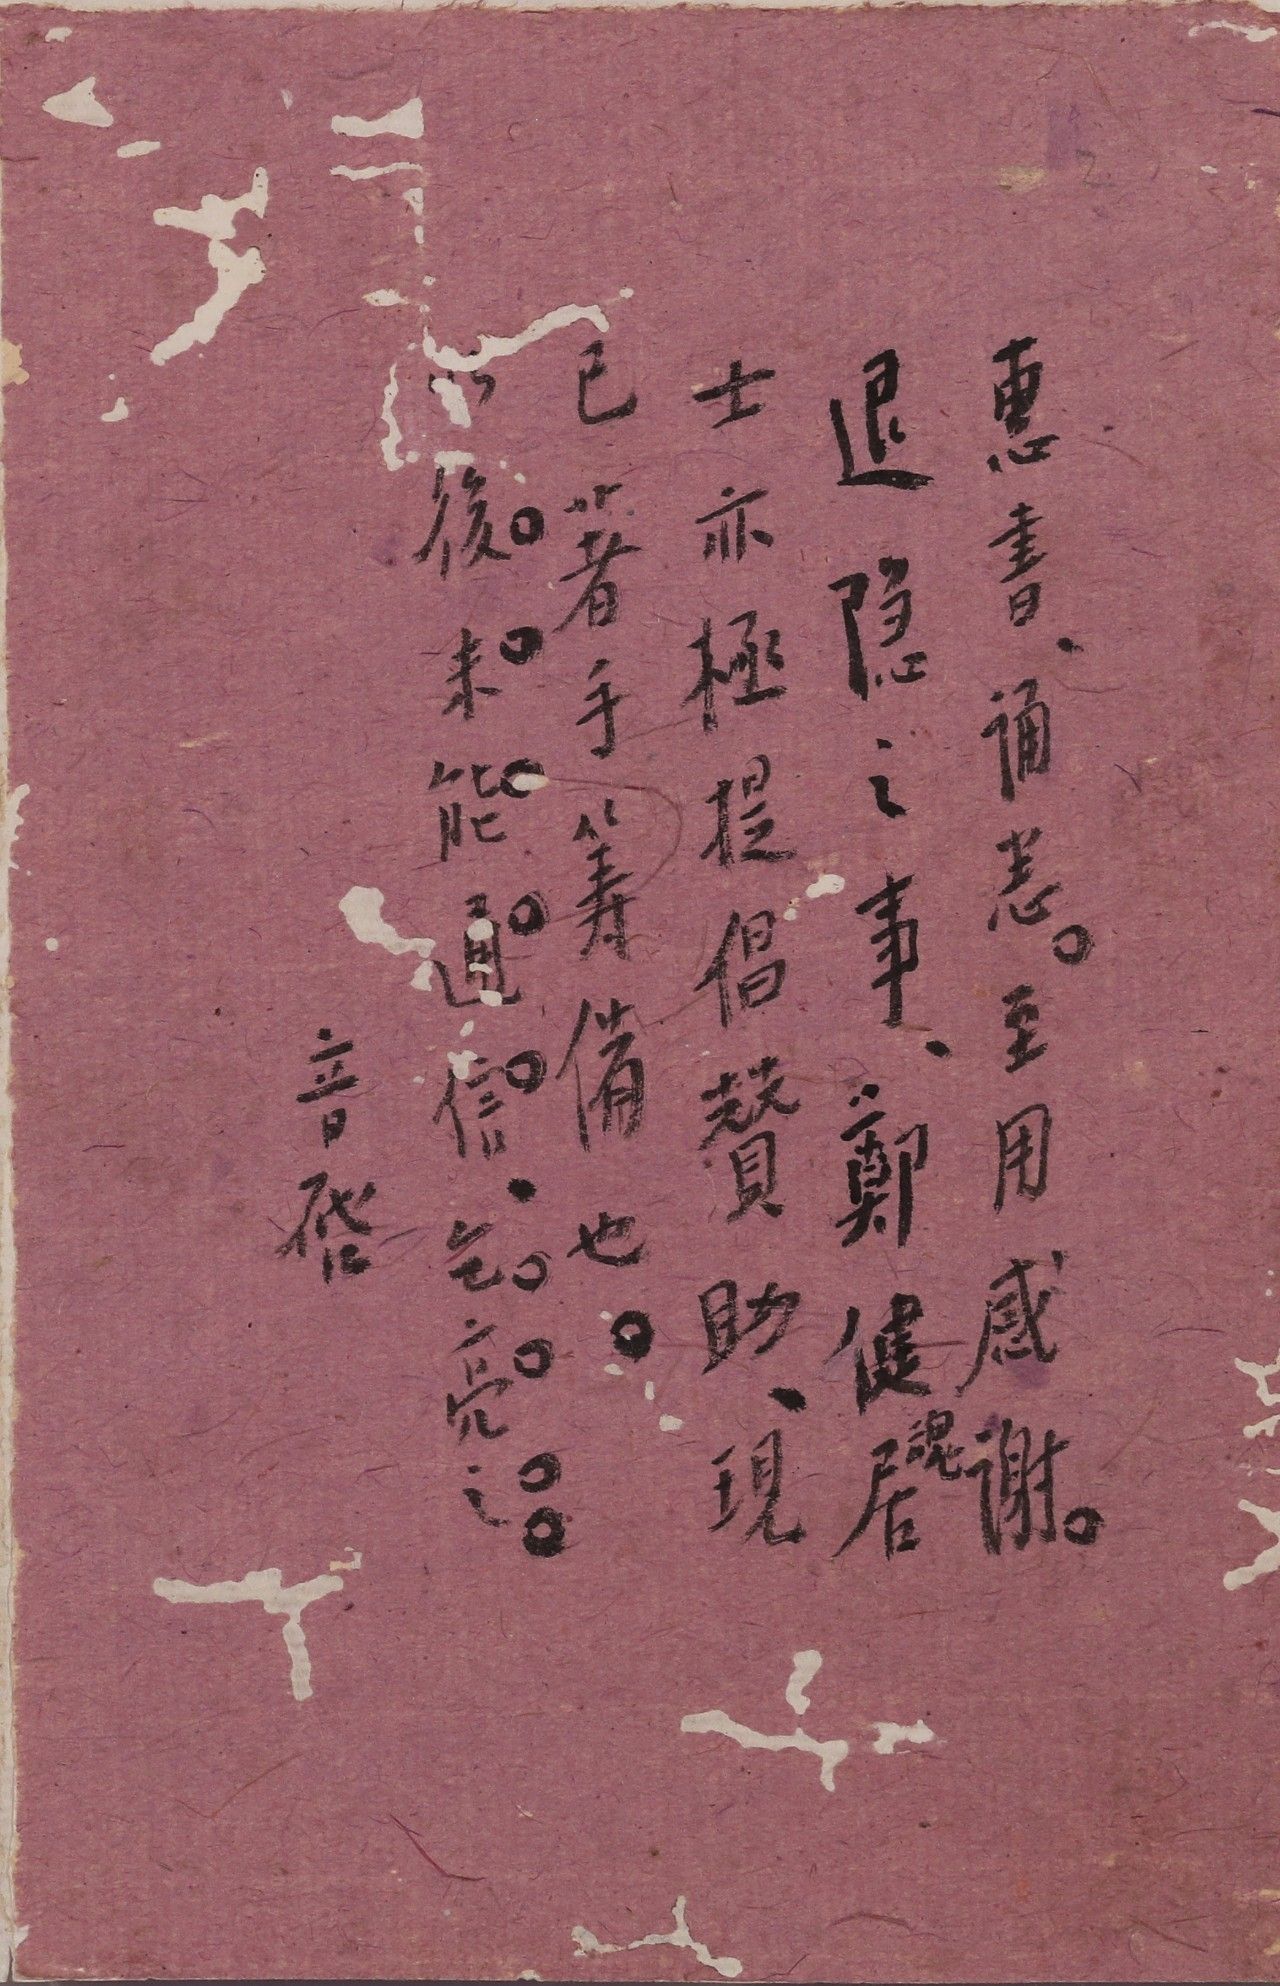 惠書、誦悉。至用感謝。
退隱之事、鄭健魂居
士亦極提倡贊助、現
已著手籌備也。
以後。未。能。通。信。、乞。亮。之。。
音啓